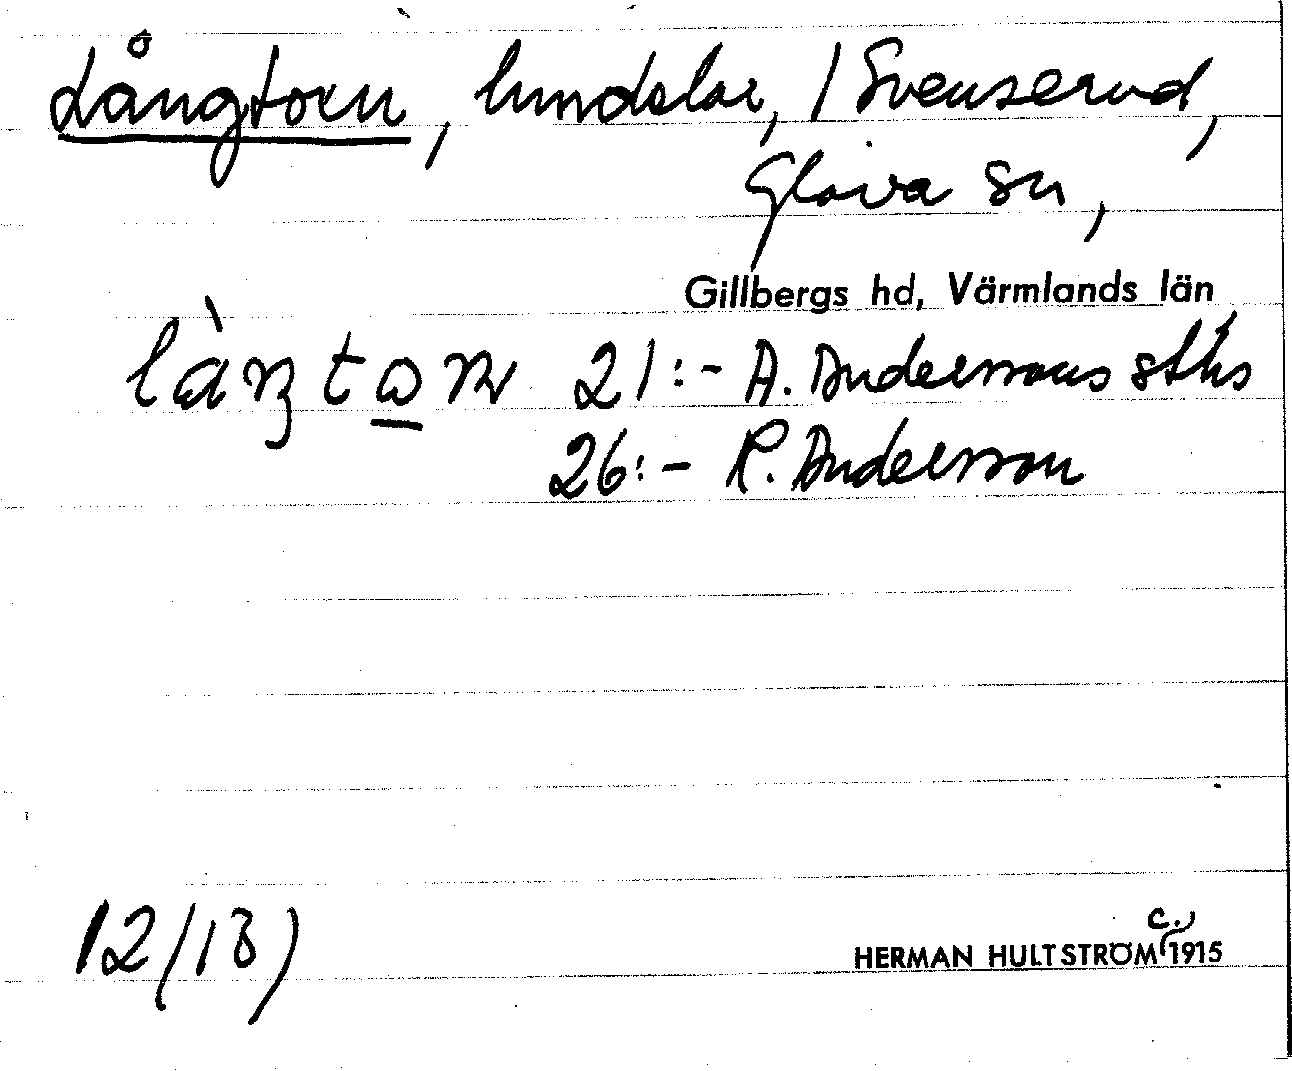 Långtorn, lundelar, / Svenserud,
Glava sn,
Gillbergs hd, Värmlands län
làŋtan 21:- A. Anderssons sths
26:- R. Andersson
12/(13)
HERMAN HULTSTRÖM c. 1915